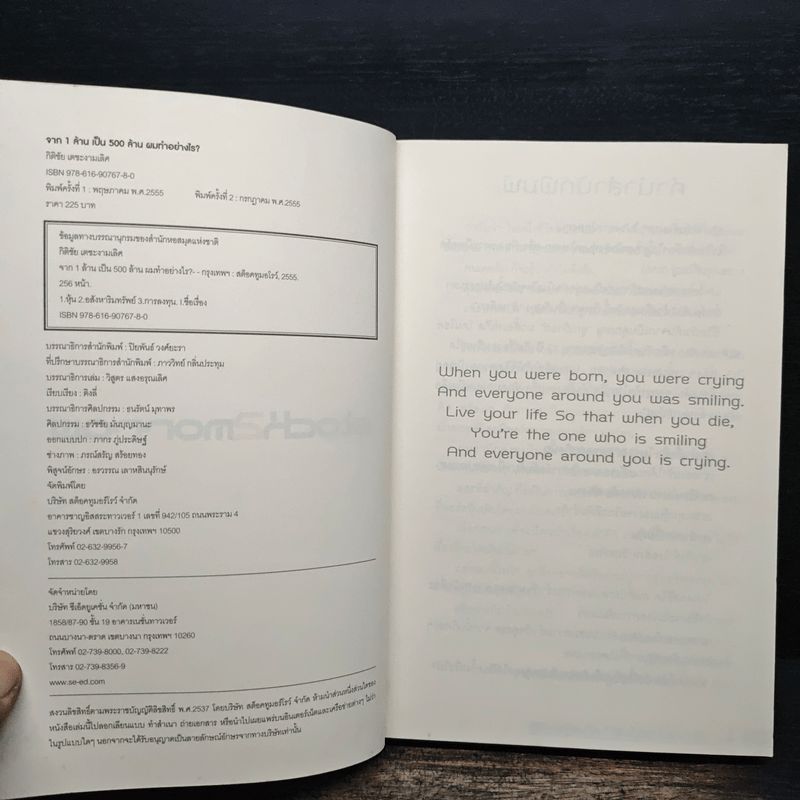 จาก 1 ล้าน เป็น 500 ล้าน ผมทำอย่างไร?
กิติชัย เตชะงามเลิศ
ISBN 978-616-90767-8-0
พิมพ์ครั้งที่ 1 : พฤษภาคม พ.ศ.2555 พิมพ์ครั้งที่ 2 : กรกฎาคม พ.ศ.2555
ราคา 225 บาท
ข้อมูลทางบรรณานุกรมของสำนักหอสมุดแห่งชาติ
กิติชัย เตชะงามเลิศ
จาก 1 ล้าน เป็น 500 ล้าน ผมทำอย่างไร?- - กรุงเทพฯ : สต็อคทูมอโรว์, 2555.
256 หน้า.
1.หุ้น 2.อสังหาริมทรัพย์ 3.การลงทุน. I.ชื่อเรื่อง
ISBN 978-616-90767-8-0
บรรณาธิการสำนักพิมพ์ : ปิยพันธ์ วงศ์ยะรา
ที่ปรึกษาบรรณาธิการสำนักพิมพ์ : ภาววิทย์ กลิ่นประทุม
บรรณาธิการเล่ม : วิสูตร แสงอรุณเลิศ
เรียบเรียง : ติงลี่
บรรณาธิการศิลปกรรม : ธนรัตน์ มุทาพร
ศิลปกรรม : ธวัชชัย มั่นบุญมานะ
ออกแบบปก : ภากร ภู่ประดิษฐ์
ช่างภาพ : ภรณ์สรัญ สร้อยทอง
พิสูจน์อักษร : อรวรรณ เลาหสินนุรักษ์
จัดพิมพ์โดย
บริษัท สต็อคทูมอร์โรว์ จำกัด
อาคารชาญอิสสระทาวเวอร์ 1 เลขที่ 942/105 ถนนพระราม 4
แขวงสุริยวงศ์ เขตบางรัก กรุงเทพฯ 10500
โทรศัพท์ 02-632-9956-7
โทรสาร 02-632-9958
จัดจำหน่ายโดย
บริษัท ซีเอ็ดยูเคชั่น จำกัด (มหาชน)
1858/87-90 ชั้น 19 อาคารเนชั่นทาวเวอร์
ถนนบางนา-ตราด เขตบางนา กรุงเทพฯ 10260
โทรศัพท์ 02-739-8000, 02-739-8222
โทรสาร 02-739-8356-9
www.se-ed.com
สงวนลิขสิทธิ์ตามพระราชบัญญัติลิขสิทธิ์ พ.ศ.2537 โดยบริษัท สต็อคทูมอร์โรว์ จำกัด ห้ามนำส่วนหนึ่งส่วนใดของ
หนังสือเล่มนี้ไปลอกเลียนแบบ ทำสำเนา ถ่ายเอกสาร หรือนำไปเผยแพร่บนอินเตอร์เน็ตและเครือข่ายต่างๆ ไม่ว่า
ในรูปแบบใดๆ นอกจากจะได้รับอนุญาตเป็นลายลักษณ์อักษรจากทางบริษัทเท่านั้น
When you were born, you were crying
And everyone around you was smiling.
Live your life So that when you die,
You're the one who is smiling
And everyone around you is crying.